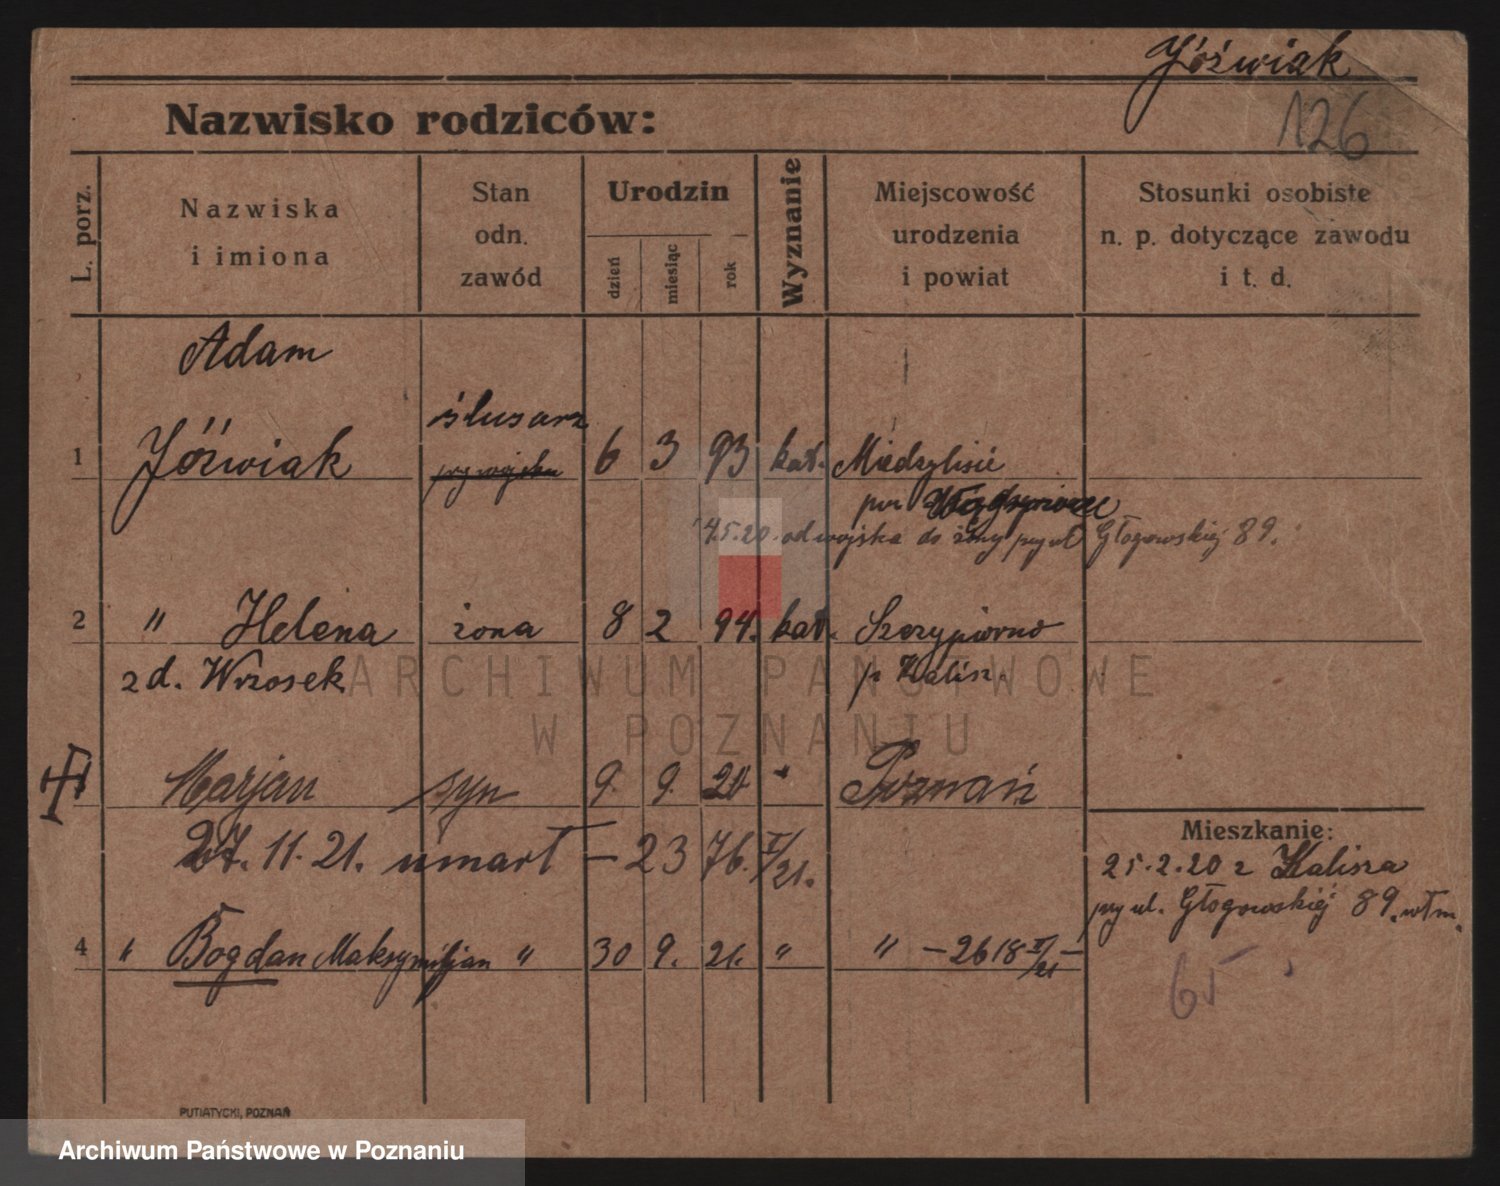 Jóźwiak
126
Nazwisko rodziców:
L. porz.
Nazwiska
i imiona
Stan
odn.
zawód
Urodzin
dzień
miesiąc
rok
Wyznanie
Miejscowość
urodzenia
i powiat
Stosunki osobiste
n. p. dotyczące zawodu
i t. d.
Adam
ślusarz
1 Jóźwiak przy wojsku 6 3 93 kat. Miedzylisie
pow
4.5.20. od wojska do żony przy ul Głogowskiej 89.
2 " Helena żona 8 2 94. kat. Szczypiorno
z d. Wrzosek p. Kalisz.
ARCHIWUM PAŃSTWOWE
W POZNANIU
Marjan syn 9. 9. 20 " Poznań
27. 11. 21. umarł – 2376. II/21.
Mieszkanie:
25.2.20 z Kalisza
przy ul. Głogowskiej 89. włm.
4 " Bogdan Maksymiljan " 30 9. 21. " " – 2618 II/21 –
65
PUTIATYCKI, POZNAŃ
Archiwum Państwowe w Poznaniu